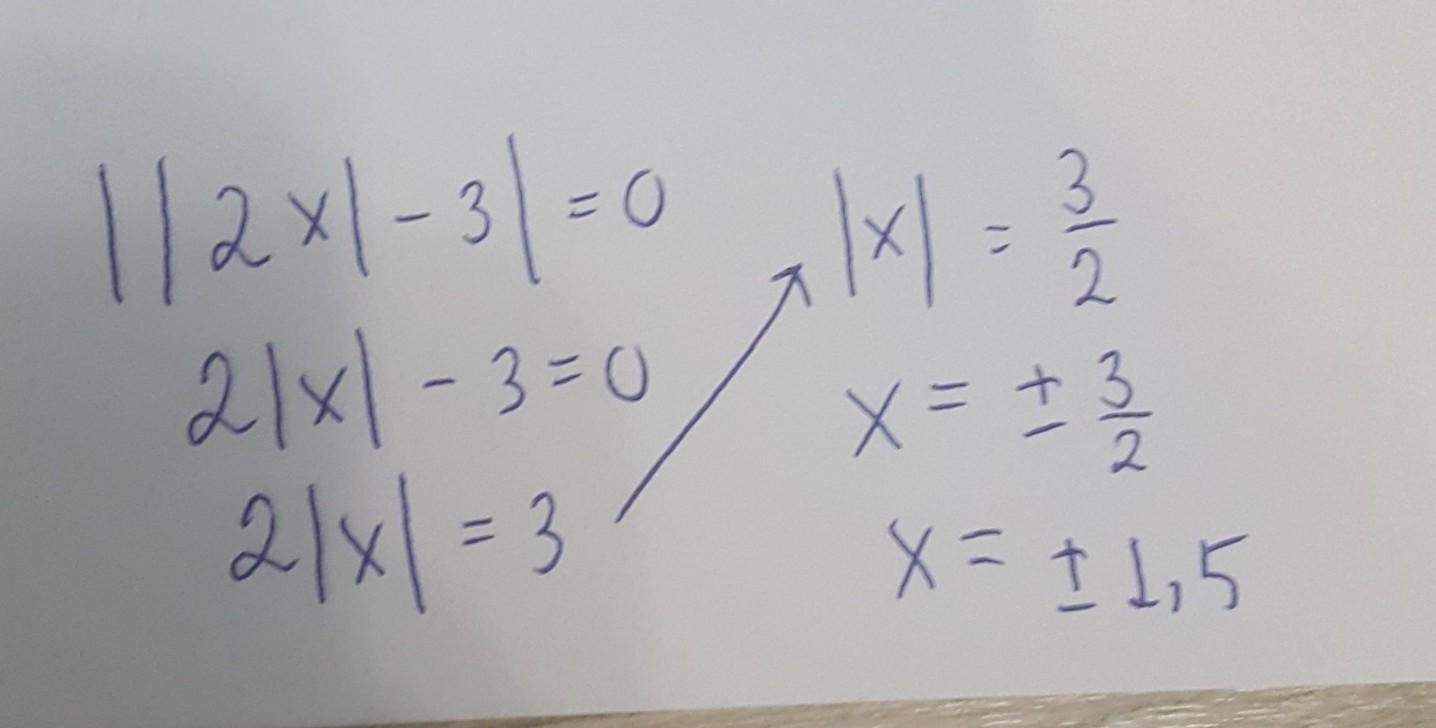 ||2x|-3|=0
2|x|-3=0
2|x|=3
|x|=3/2
x=±3/2
x=±1,5